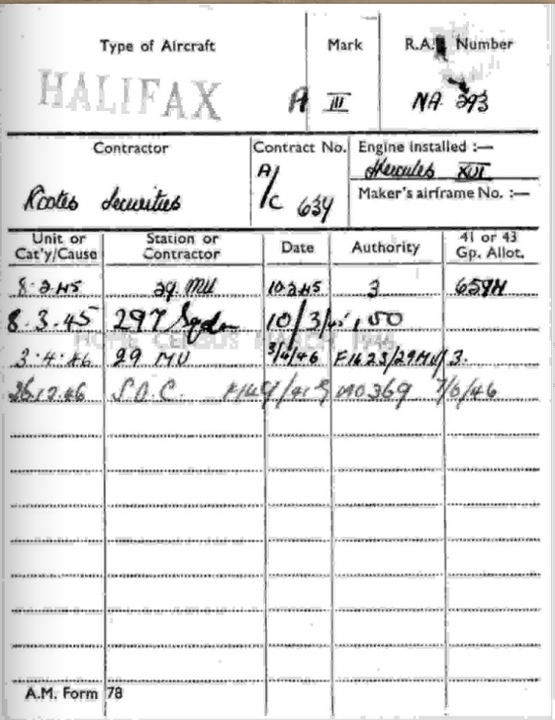 Type of Aircraft Mark R.A.F. Number
HALIFAX A III NA 293
Contractor Contract No. Engine installed :—
Hercules XVI
Rootes Securities A/C 637 Maker's airframe No. :—
Unit or Cat'y/Cause Station or Contractor Date Authority 41 or 43 Gp. Allot.
8·2·45 29 MU 10·2·45 3 659H
8.3.45 297 Sqdn 10/3/45 150
HOME CENSUS MARCH 1946
3·4·46 29 MU 3/4/46 F1623/29MU/3.
26.12.46 S.O.C. M0369 7/6/46
A.M. Form 78